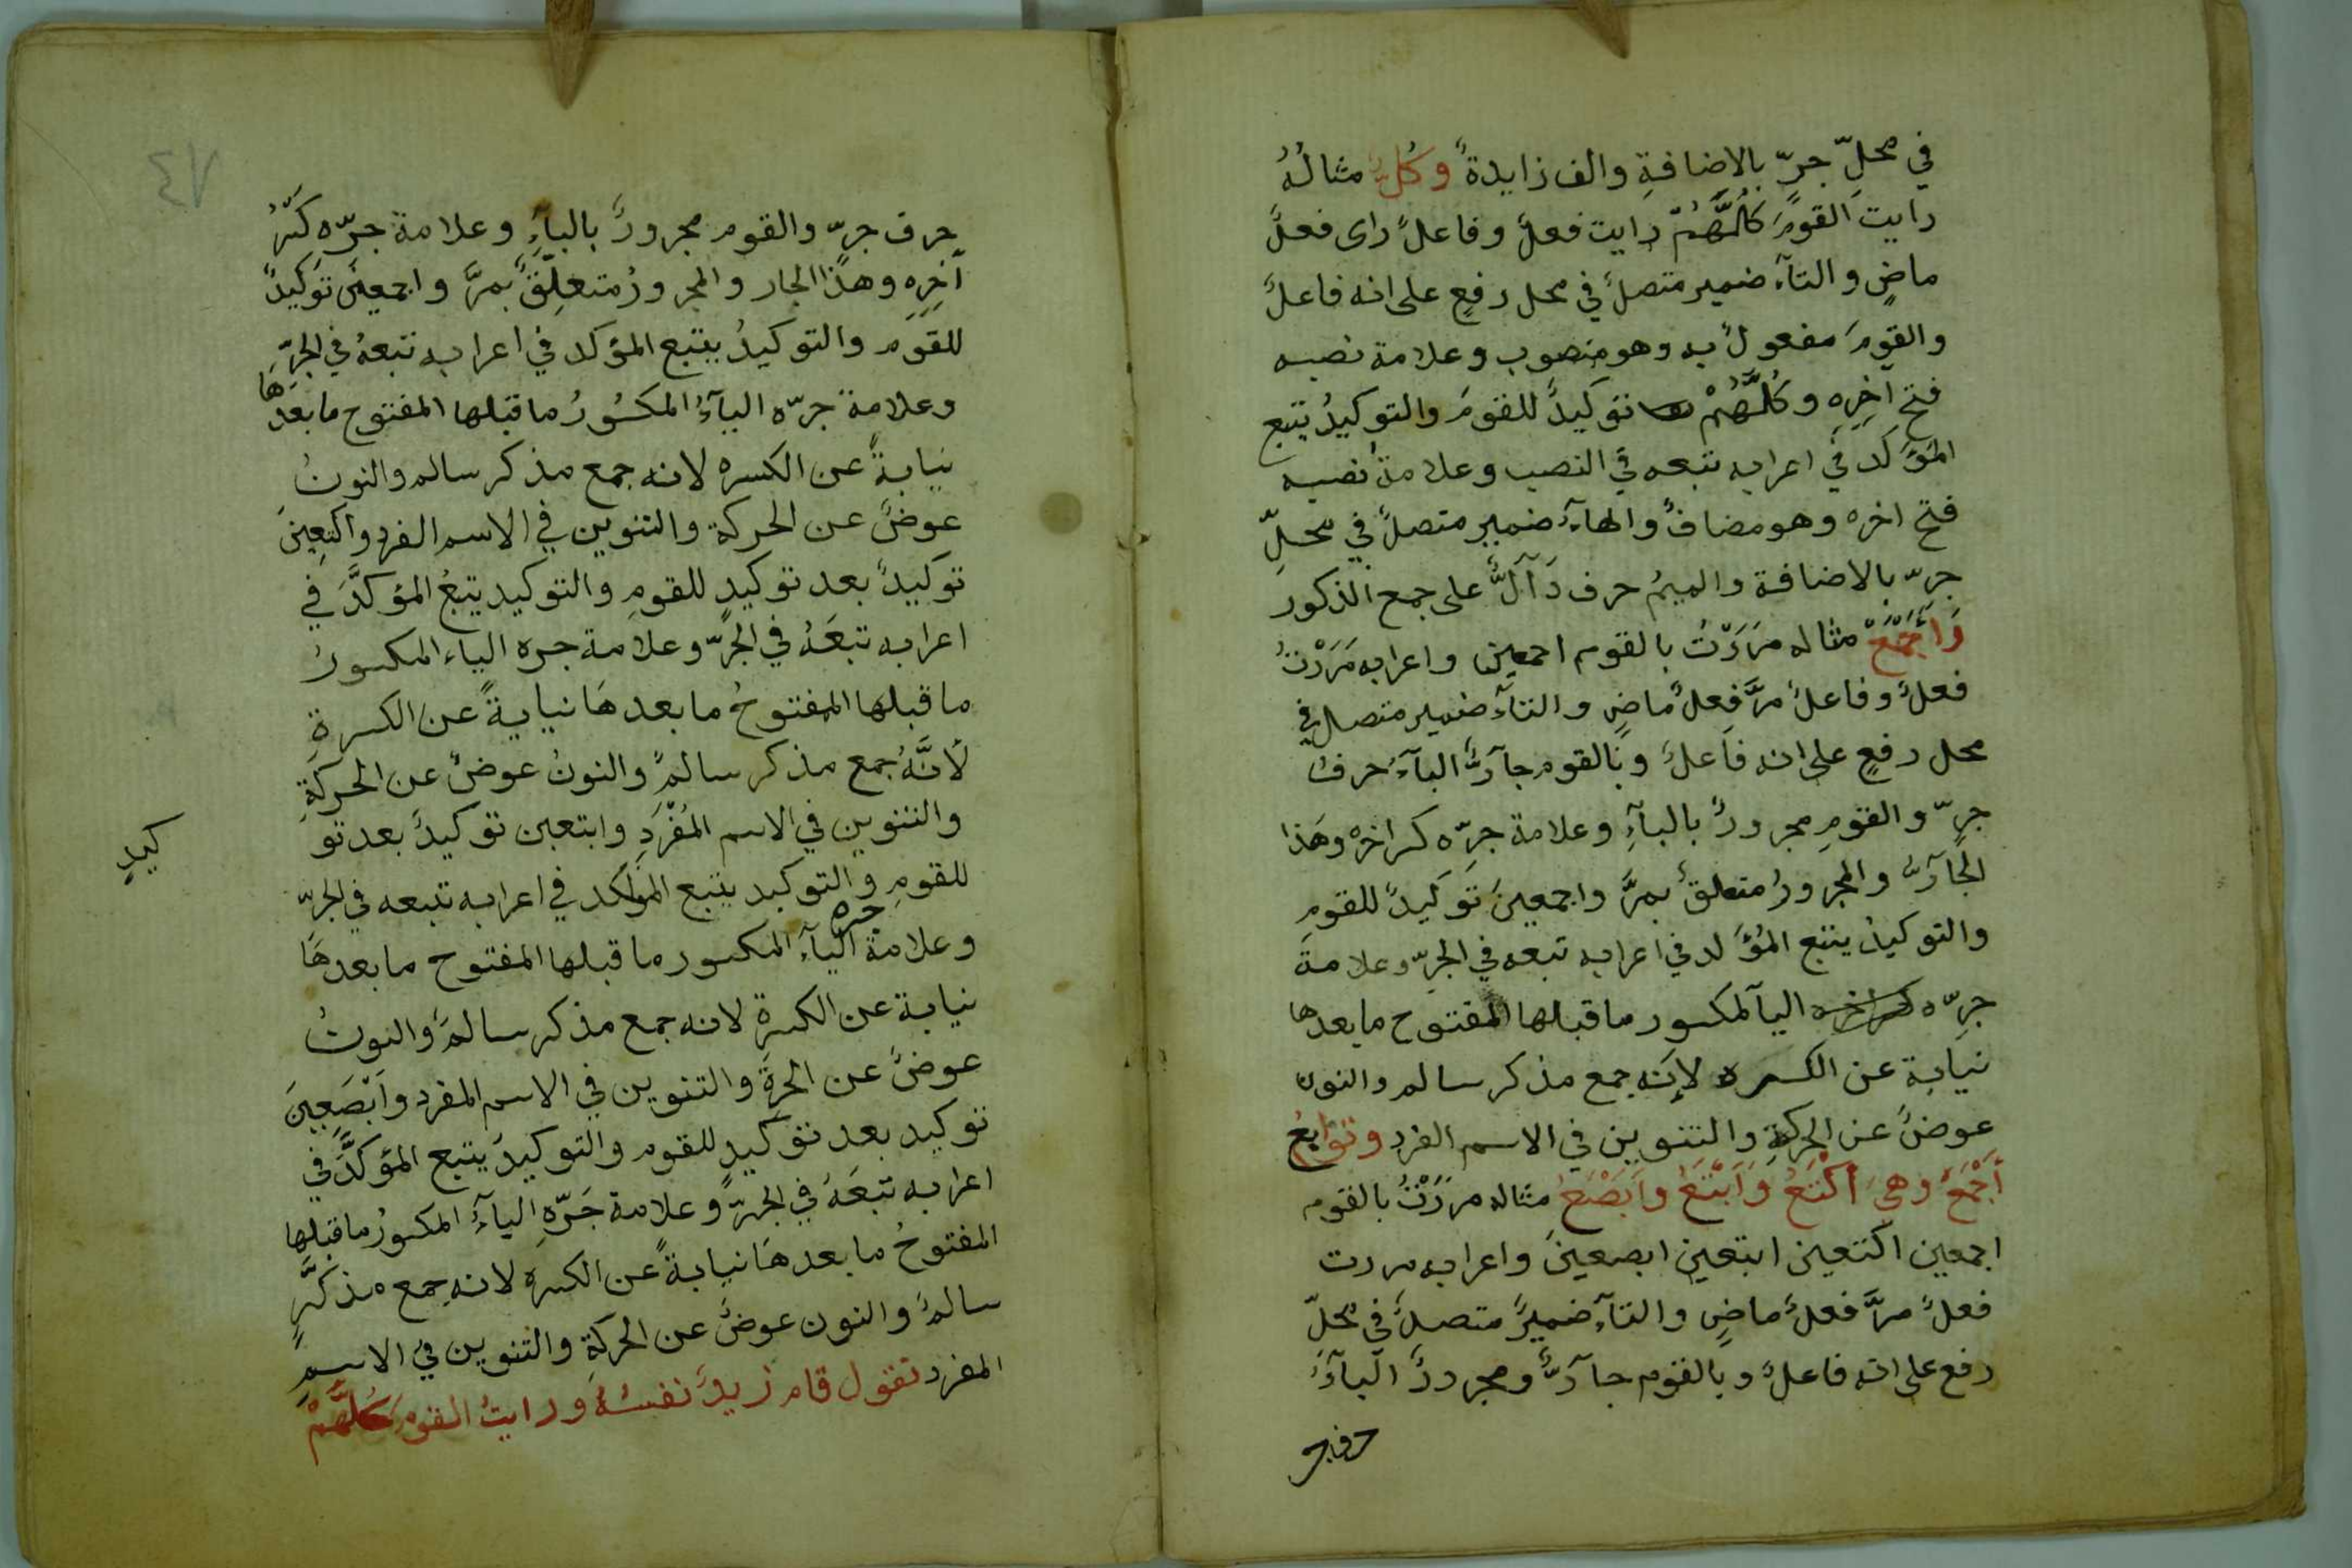 في محلِّ جرّ بالاضافةِ والف زايدةً وكُلٌّ مثالُهُ
رايتَ القومَ كلَّهُمْ رايت فعلٌ وفاعلٌ راى فعلٌ
ماضٍ والتآء ضمير متصلٌ في محل رفعٍ على انه فاعلٌ
والقومَ مفعولٌ به وهو منصوب وعلامة نصبه
فتح آخِرِه وكُلَّهُمْ توكيدٌ للقومَ والتوكيدُ يتبع
المؤَكَد في اعرابه تبعه في النصب وعلامةُ نصبه
فتح اخره وهو مضافٌ والهآء ضمير متصلٌ في محلِّ
جرّ بالاضافة والميمُ حرف دَآلٌّ على جمع الذكور
وَأَجْمَعْ مثاله مَرَرْتُ بالقوم اجمعين واعرابه مَرَرْتُ
فعلٌ وفاعلٌ مرَّ فعلٌ ماضٍ والتآء ضمير متصل في
محل رفعٍ على انه فاعلٌ وبالقوم جآرٌّ البآءُ حرفُ
جرّ والقومِ مجرورٌ بالبآءِ وعلامة جرِّه كسر اخرِهْ وهَذا
الجآرُّ والمجرورُ متعلقٌ بمرَّ واجمعينَ توكيدٌ للقومِ
والتوكيدُ يتبع المُؤَكد في اعرابه تبعه في الجرّ وعلامة
جرّه اليآ المكسور ما قبلها المفتوح ما بعدها
نيابة عن الكسره لانه جمع مذكر سالم والنون
عوضٌ عن الحركةِ والتنوين في الاسم الفرد وتوابعُ
أَجْمَعُ وهيَ أَكْتَعُ وَأَبْتَعُ وأَبْصَعُ مثاله مررْتُ بالقوم
اجمعين اكتعين ابتعين ابصعينَ واعرابه مررت
فعلٌ مرَّ فعلٌ ماضٍ والتآء ضميرٌ متصلٌ في محلّ
رفع على انه فاعلٌ وبالقوم جآرٌّ ومجرورٌ البآءُ
حرف جر
٤٧
حرف جرّ والقوم مجرورٌ بالبآءِ وعلامة جرّه كسْرُ
آخِرِهِ وهذا الجار والمجرورُ متعلِّقٌ بمرَّ واجمعينَ توكيدٌ
للقومِ والتوكيدُ يتبع المؤكد في اعرابه تبعهُ في الجرّ
وعلامة جرّه اليآءُ المكسُورُ ما قبلها المفتوح ما بعدَهَا
نيابةً عن الكسره لانه جمع مذكر سالم والنونُ
عوضٌ عن الحركة والتنوين في الاسم الفردِ واكتعِينَ
توكيدٌ بعد توكيدٍ للقومِ والتوكيد يتبعُ المؤكدَّ في
اعرابه تبعَهُ في الجرِّ وعلامة جره الياء المكسورُ
ما قبلها المفتوحُ ما بعدهَا نيابةً عن الكسرةِ
لأنَّهُ جمع مذكر سالمٌ والنونُ عوضٌ عن الحركةِ
والتنوين في الاسم المُفْرَدِ وابتعين توكيدٌ بعد تو
كيدٍ
للقومِ والتوكيد يتبع المؤكد في اعرابه تبعه في الجرّ
وعلامة جره اليآءِ المكسور ما قبلها المفتوح ما بعدهَا
نيابة عن الكسرةِ لانه جمع مذكر سالمٌ والنونُ
عوضٌ عن الحرةِ والتنوين في الاسم المفرد وَابْصَعِينَ
توكيد بعد توكيدٍ للقوم والتوكيدُ يتبع المؤكدَّ في
اعرابه تبعَهُ في الجرّ وعلامة جَرّهِ اليآءُ المكسورُ ما قبلها
المفتوحُ ما بعدهَا نيابةً عن الكسرهِ لانه جمع مذكَّرٍ
سالمٌ والنون عوضٌ عن الحركةِ والتنوين في الاسمِ
المفرد تقول قام زيدٌ نفسُهُ ورايتُ القومَ كلَّهُمْ